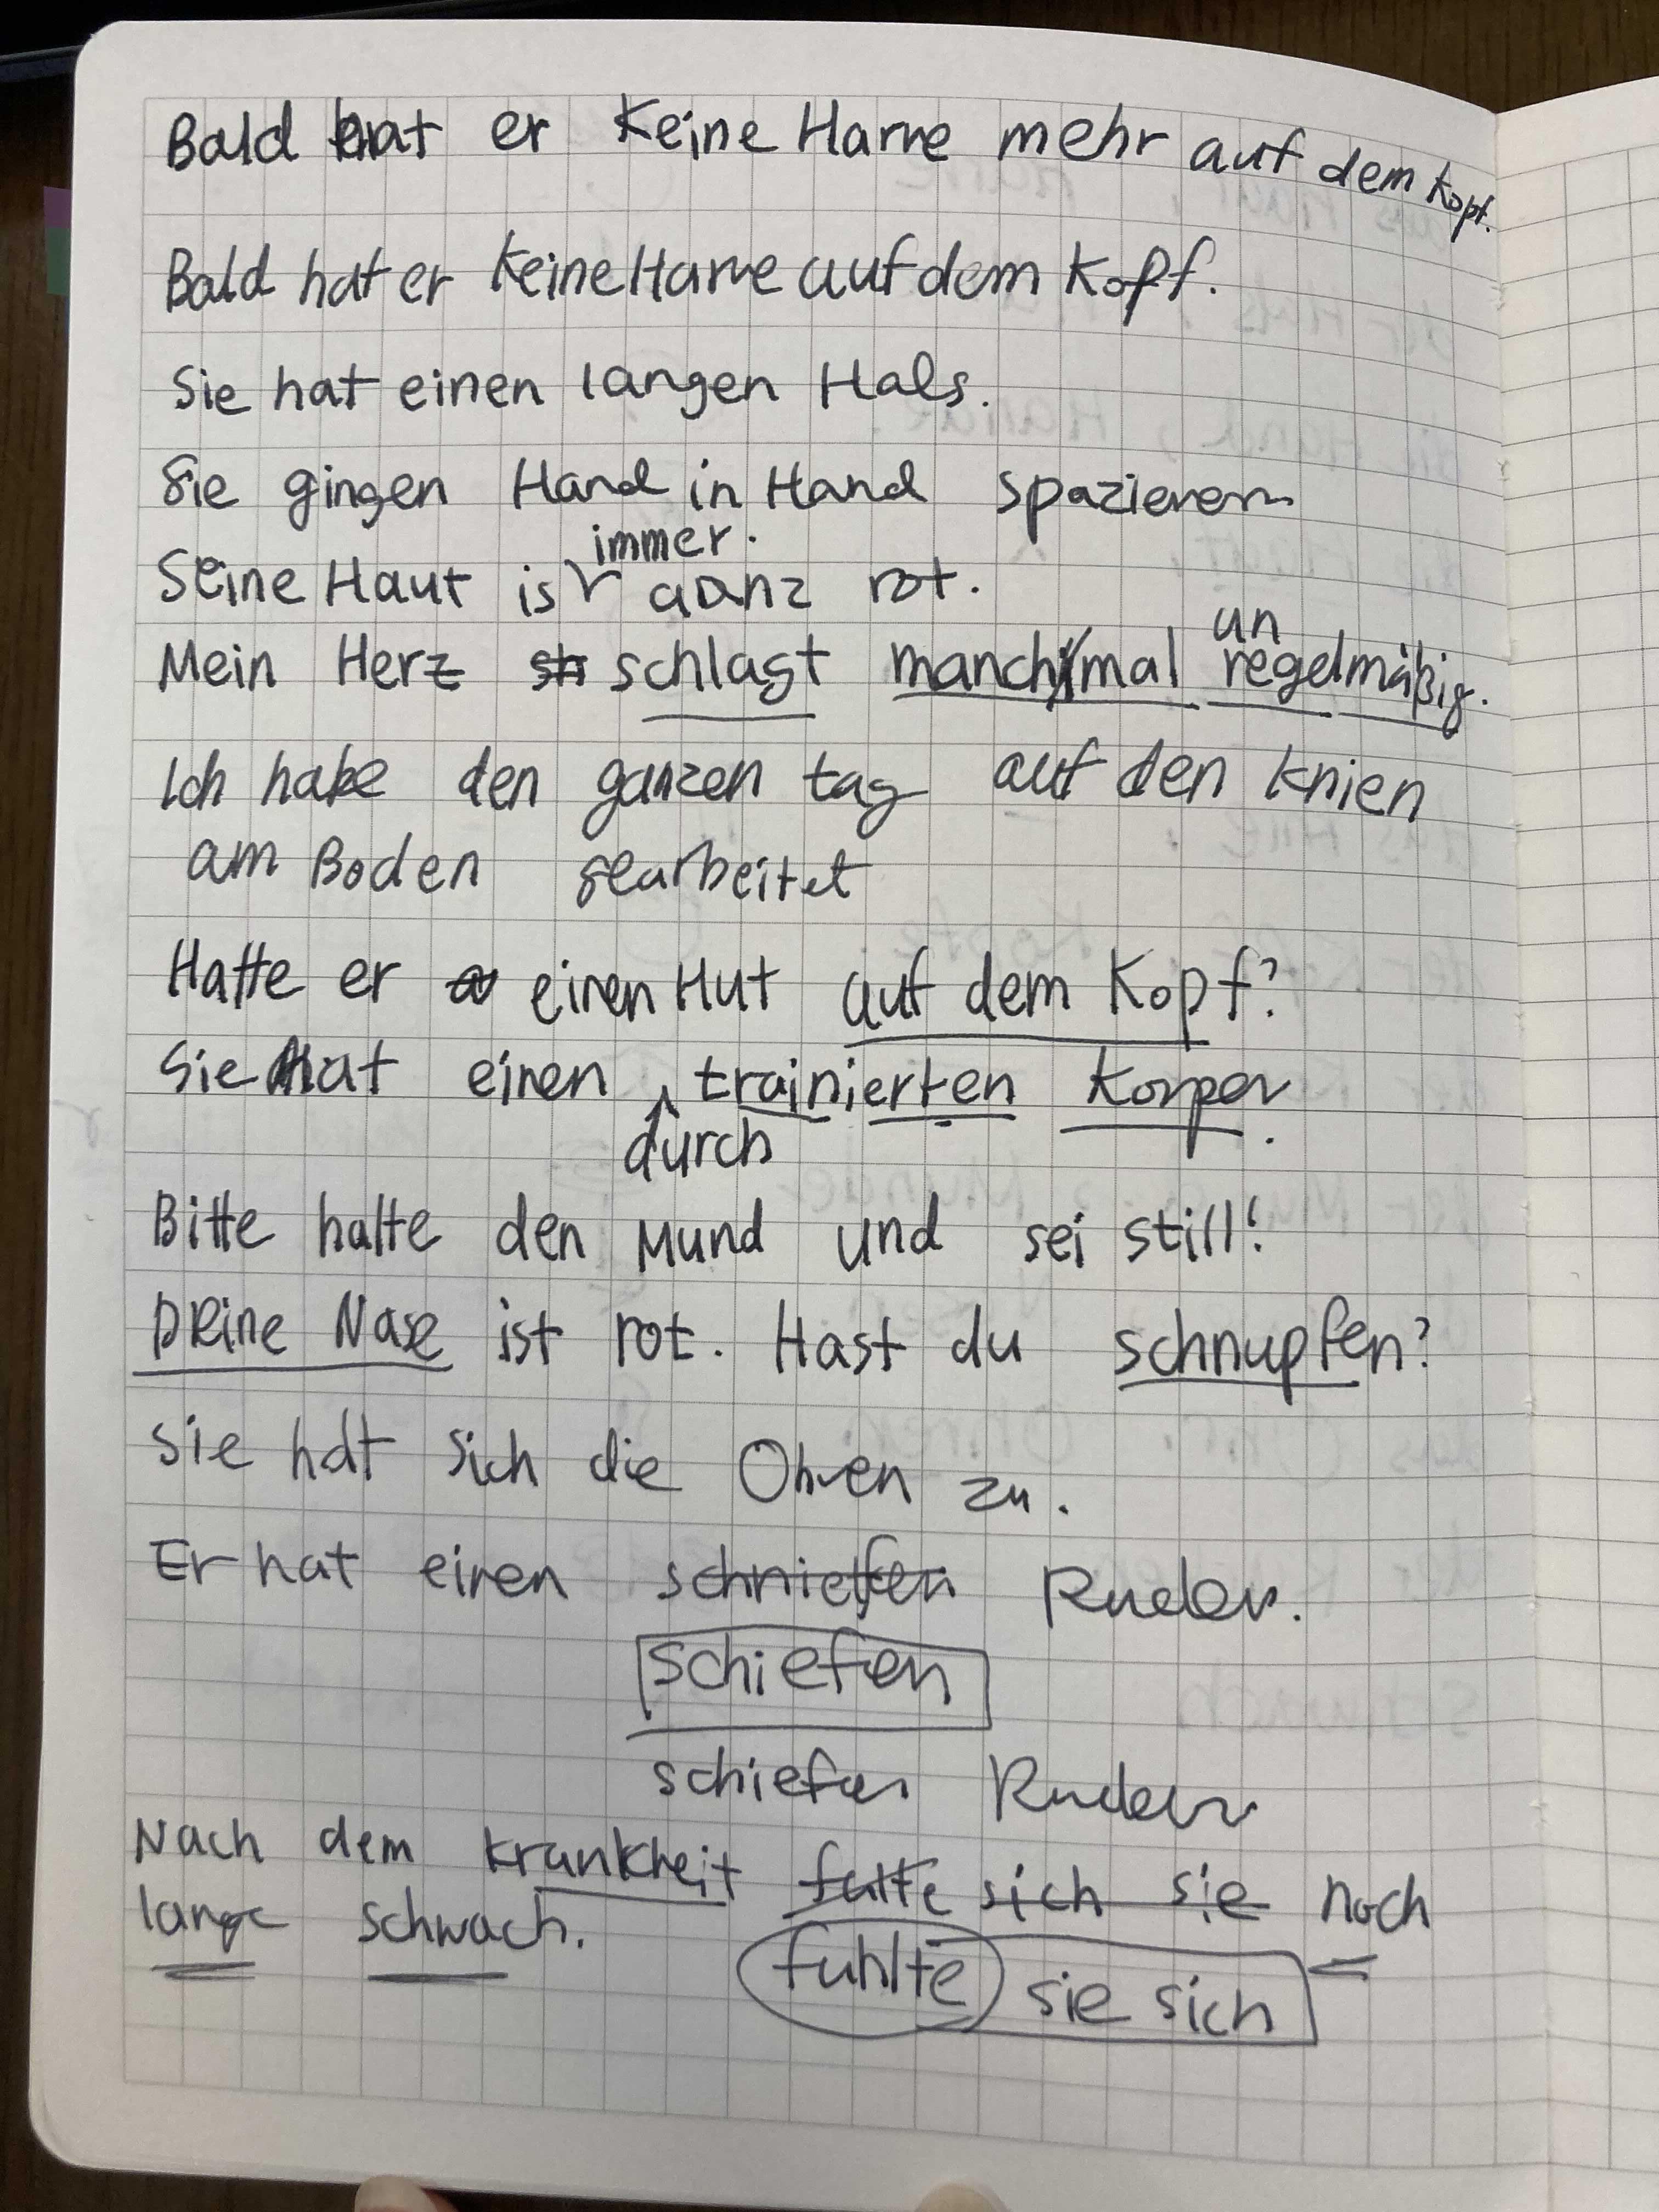 Bald hat er keine Harre mehr auf dem Kopf.
Bald hat er keine Harre auf dem Kopf.
Sie hat einen langen Hals.
Sie gingen Hand in Hand spazieren
immer.
Seine Haut is ganz rot.
un
Mein Herz schlagt manchmal regelmäßig.
Ich habe den ganzen tag auf den knien
am Boden gearbeitet
Hatte er einen Hut auf dem Kopf?
Sie hat einen trainierten Korper.
durch
Bitte halte den Mund und sei still!
Deine Nase ist rot. Hast du schnupfen?
Sie hat sich die Ohren zu.
Er hat einen schniefen Ruder.
schiefen
schiefen Ruder
Nach dem krankheit fulte sich sie noch
lange schwach.
fuhlte sie sich